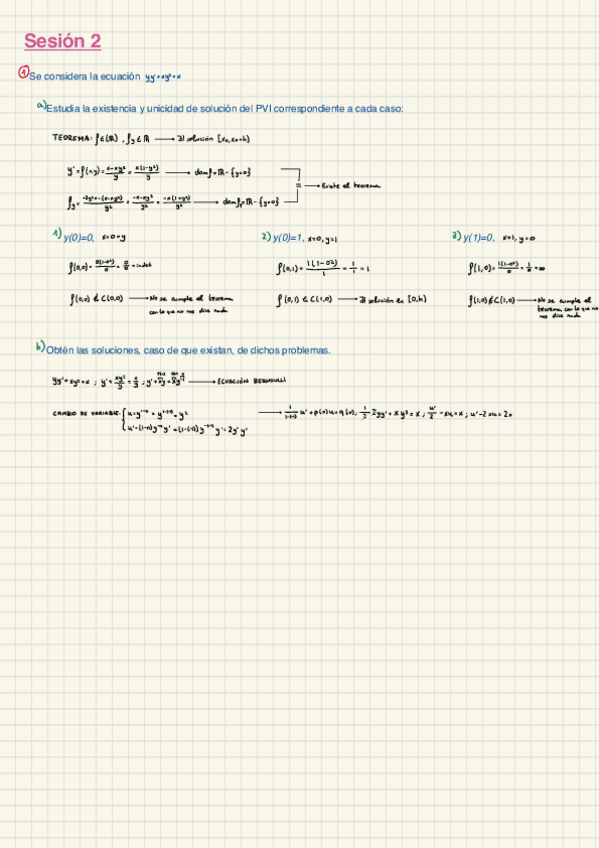 Sesión 2
① Se considera la ecuación yy'+xy²=x
a) Estudia la existencia y unicidad de solución del PVI correspondiente a cada caso:
TEOREMA: f∈(ℝ), fy∈ℝ → ∃! solución [x₀,x₀+h)
y'=f(x,y)=(x-xy²)/y=x(1-y²)/y → dom f=ℝ-{y=0}
fy=(-2y²x-(x-xy²))/y²=(-x-xy²)/y²=-x(1+y²)/y² → dom fy=ℝ-{y=0}
= → Existe el teorema
1) y(0)=0, x=0=y
f(0,0)=0(1-0²)/0=0/0=indet
f(0,0)∉C(0,0) → No se cumple el teorema
con lo que no nos dice nada
2) y(0)=1, x=0, y=1
f(0,1)=1(1-0²)/1=1/1=1
f(0,1)∈C(1,0) → ∃! solución en [0,h)
3) y(1)=0, x=1, y=0
f(1,0)=1(1-0²)/0=1/0=∞
f(1,0)∉C(1,0) → No se cumple el
teorema con lo que no
nos dice nada
b) Obtén las soluciones, caso de que existan, de dichos problemas.
yy'+xy²=x ; y'+xy²/y=x/y ; y'+xy=xy⁻¹ → ECUACIÓN BERNOULLI
CAMBIO DE VARIABLE { u=y¹⁻ⁿ=y¹⁻⁽⁻¹⁾=y²
u'=(1-n)y⁻ⁿy'=(1-(-1))y⁻⁽⁻¹⁾y'=2y'y'
→ 1/(1-(-1)) u'+p(x)u=q(x); 1/2 2yy'+xy²=x ; u'/2-xu=x ; u'-2xu=2x